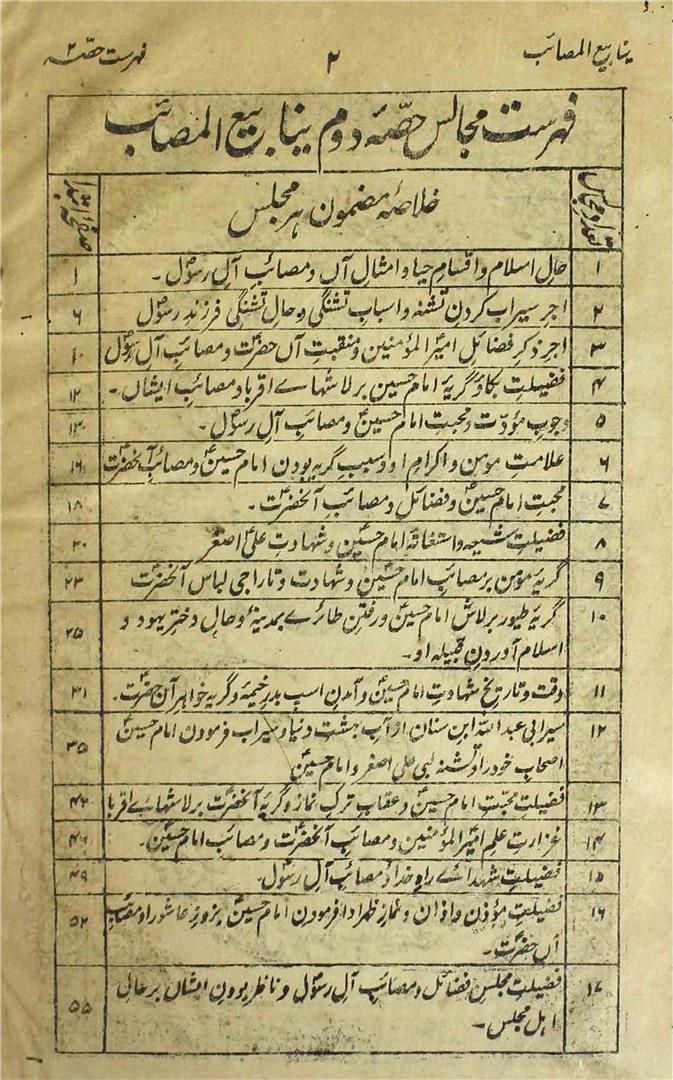 ینابیع المصائب
۲
فہرست حصّہ ۲
فہرست مجالس حصّۂ دوم ینابیع المصائب
تعداد مجالس
خلاصۂ مضمون ہر مجلس
۱ حال اسلام و اقسام حیا و امثال آں و مصائب آل رسولؐ ۔ ۱
۲ اجر سیراب کردن تشنہ و اسباب تشنگی و حال تشنگی فرزند رسولؐ ۶
۳ اجر ذکر فضائل امیرالمؤمنین و منقبت آں حضرتؑ و مصائب آل رسولؐ ۱۰
۴ فضیلت بکا و گریۂ امام حسینؑ بر لاشہاے اقربا و مصائب ایشاں ۔ ۱۲
۵ وجوب مؤدّت و محبت امام حسینؑ و مصائب آل رسولؐ ۔ ۱۳
۶ علامت مومن و اکرام او و سبب گریہ بودن امام حسینؑ و مصائب آنحضرتؑ ۱۶
۷ محبت امام حسینؑ و فضائل و مصائب آنحضرتؑ ۔ ۱۸
۸ فضیلت شیعہ و استغاثۂ امام حسینؑ و شہادت علی اصغرؑ ۲۰
۹ گریۂ مومن بر مصائب امام حسینؑ و شہادت و تاراجی لباس آنحضرتؑ ۲۳
۱۰ گریۂ طیور بر لاش امام حسینؑ و رفتن طائرے بمدینہ و حال دختر یہود و ۲۵
اسلام آوردن قبیلہ او ۔
۱۱ وقت و تاریخ شہادت امام حسینؑ و آمدن اسپ بدر خیمہ و گریہ خواہر آں حضرتؑ ۔ ۳۱
۱۲ سیرابی عبد اللہ ابن سنان از آب بہشت در دنیا و سیراب فرمودن امام حسینؑ ۳۵
اصحاب خود را و تشنہ لبی علی اصغر و امام حسینؑ
۱۳ فضیلت محبّت امام حسینؑ و عقاب ترک نماز و گریۂ آنحضرتؑ بر لاشہاے اقربا ۴۲
۱۴ غزارت علم امیرالمؤمنین و مصائب آنحضرتؑ و مصائب امام حسینؑ ۔ ۴۶
۱۵ فضیلت شہداے راہ خدا و مصائب آل رسولؐ ۔ ۴۹
۱۶ فضیلت مؤذن و اذان و نماز ظہر ادا فرمودن امام حسینؑ بروز عاشورا و مصائب ۵۲
آں حضرتؑ ۔
۱۷ فضیلت مجلس فضائل و مصائب آل رسولؐ و ناظر بودن ایشاں بر حال ۵۵
اہل مجلس ۔